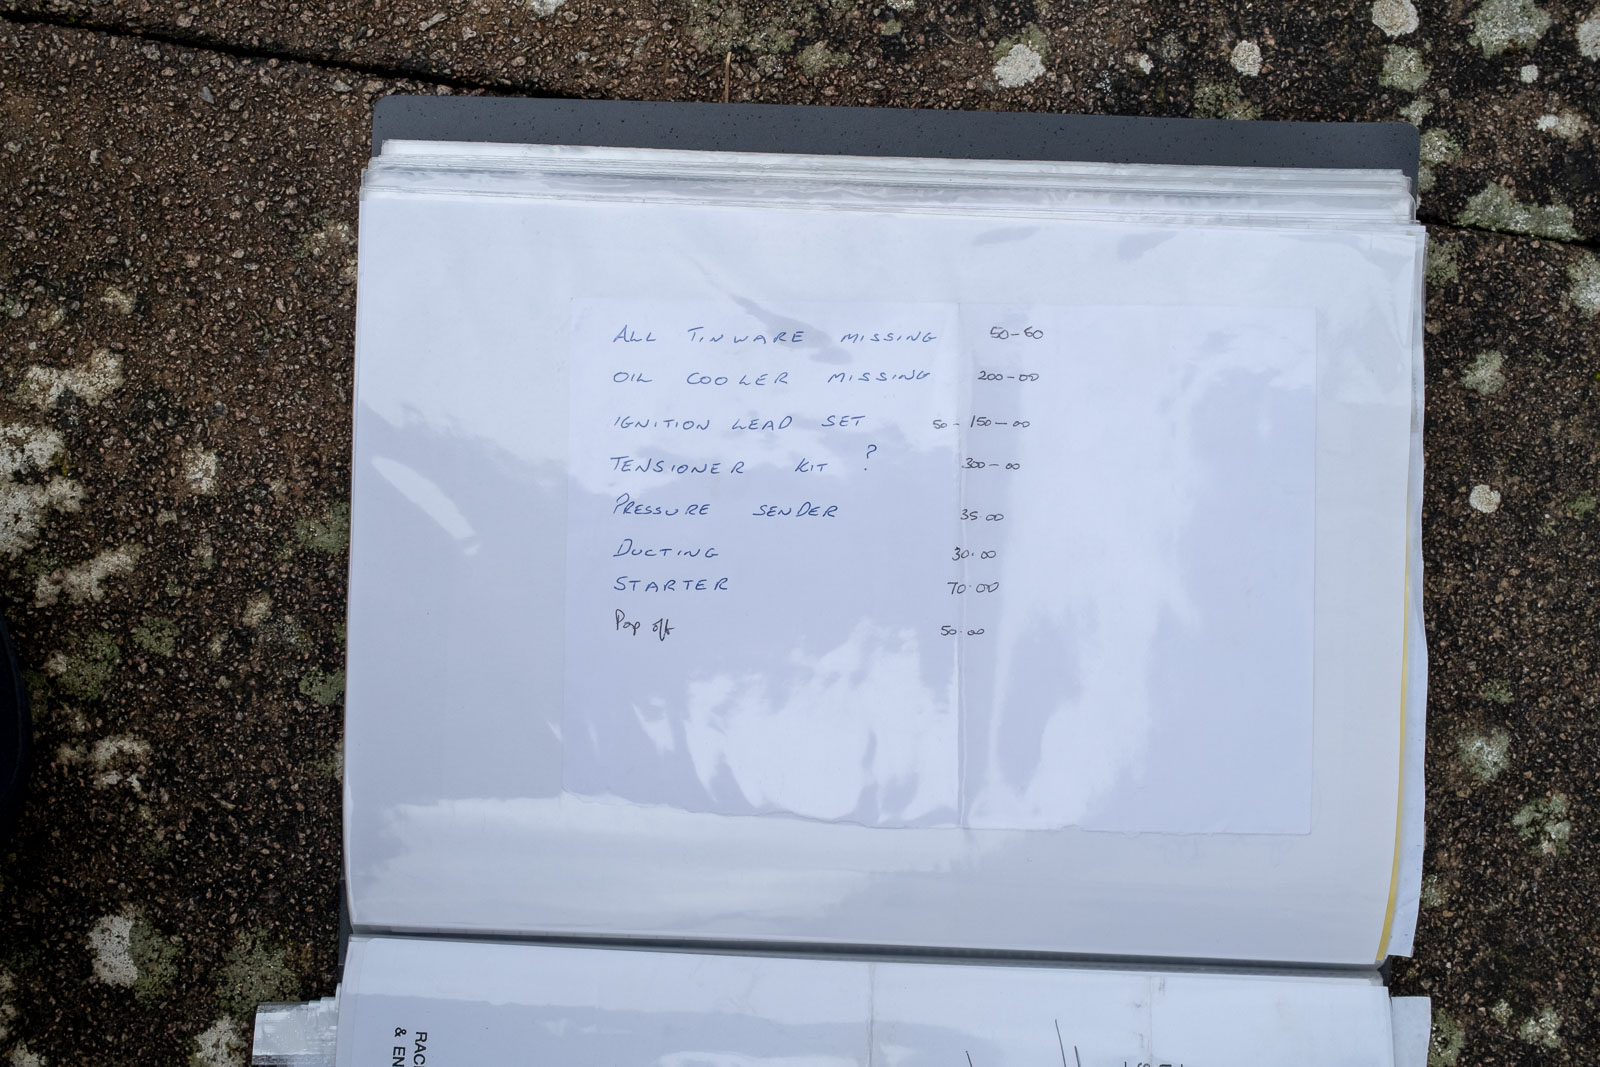 ALL TINWARE MISSING 50-60
OIL COOLER MISSING 200-00
IGNITION LEAD SET 50-150-00
TENSIONER KIT ? 300-00
PRESSURE SENDER 35.00
DUCTING 30.00
STARTER 70.00
Pop off 50.00
RAC
& EN